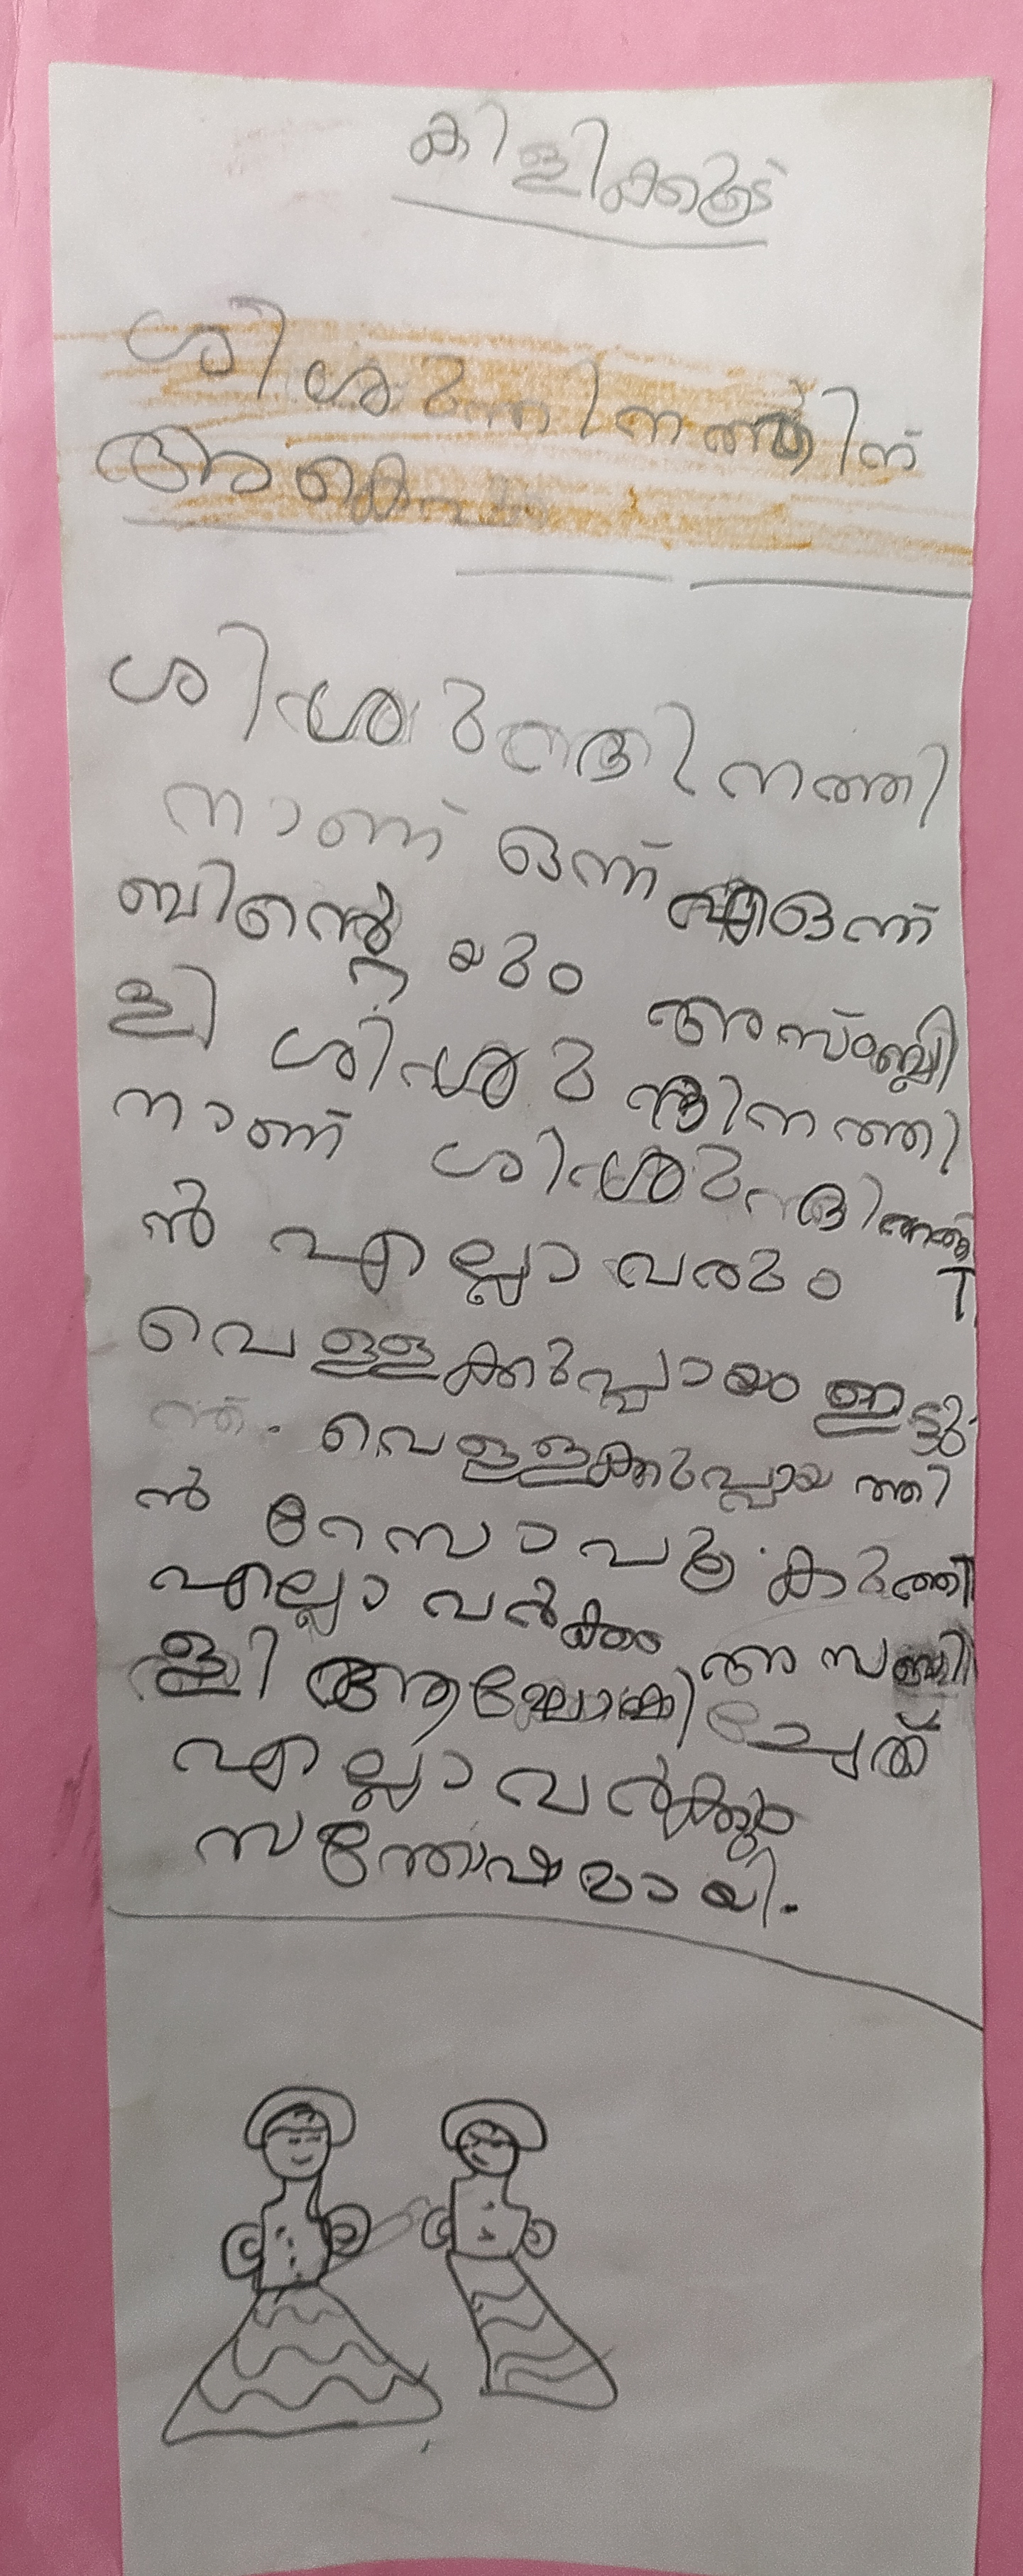 കിളിക്കൂട്
ശിശുദിനത്തിന്
ശിശുദിനത്തി
നാണ് ഒന്ന് എ ഒന്ന്
ബിന്റെ യും അസംബ്ലി
ളി ശിശു ദിനത്തി
നാണ് ശിശുദിനത്തി
ൻ എല്ലാ വരും
വെള്ളക്കുപ്പായം ഇട്ടു
ന്ന്. വെള്ളക്കുപ്പായ ത്തി
ൻ റോസാപൂ കുത്തി
എല്ലാ വർക്കും അസബ്ലി
ളി ആഘോഷി ച്ചത്
എല്ലാ വർക്കും
സന്തോഷമായി.